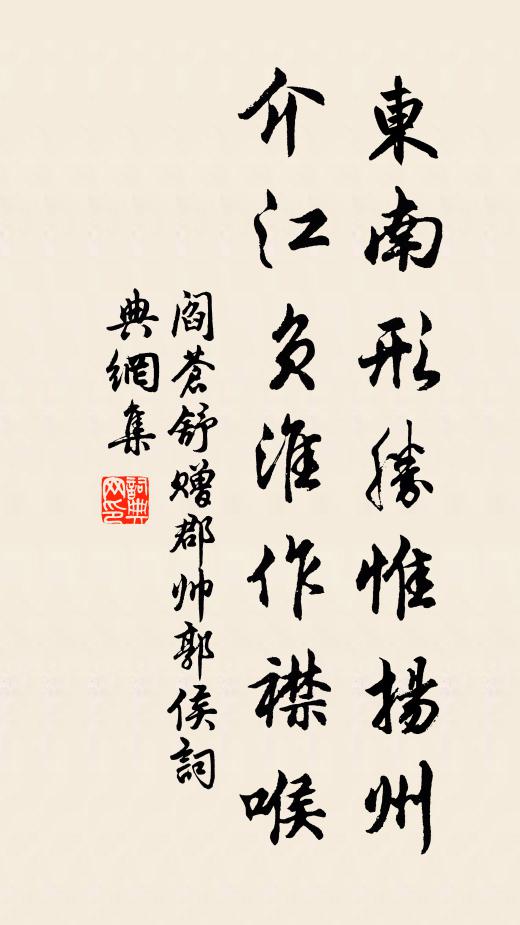 東南形勝惟揚州
介江負淮作襟喉
閻蒼舒贈郡帥郭侯詞
典網集
詞典
网印